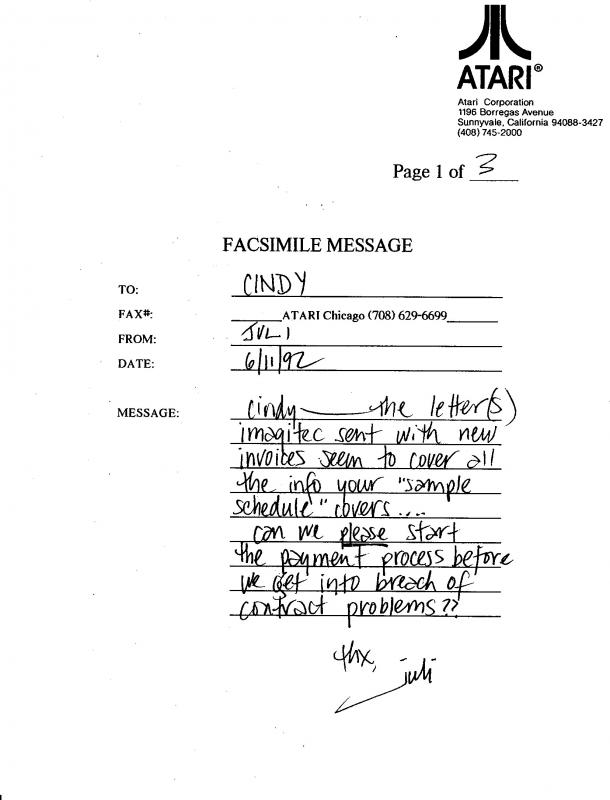 ATARI®
Atari Corporation
1196 Borregas Avenue
Sunnyvale, California 94088-3427
(408) 745-2000
Page 1 of 3
FACSIMILE MESSAGE
TO: CINDY
FAX#: ATARI Chicago (708) 629-6699
FROM: JULI
DATE: 6/11/92
MESSAGE: Cindy — the letter(s)
imagitec sent with new
invoices seem to cover all
the info your "sample
schedule" covers....
can we please start
the payment process before
we get into breach of
contract problems??
thx,
juli